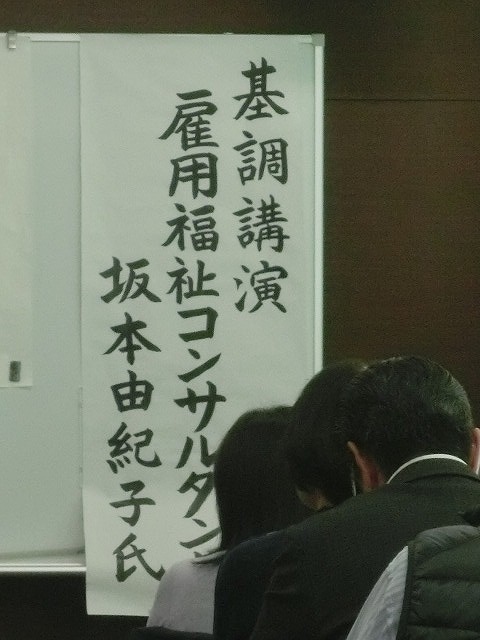 基調講演
雇用福祉コンサルタン
坂本由紀子氏